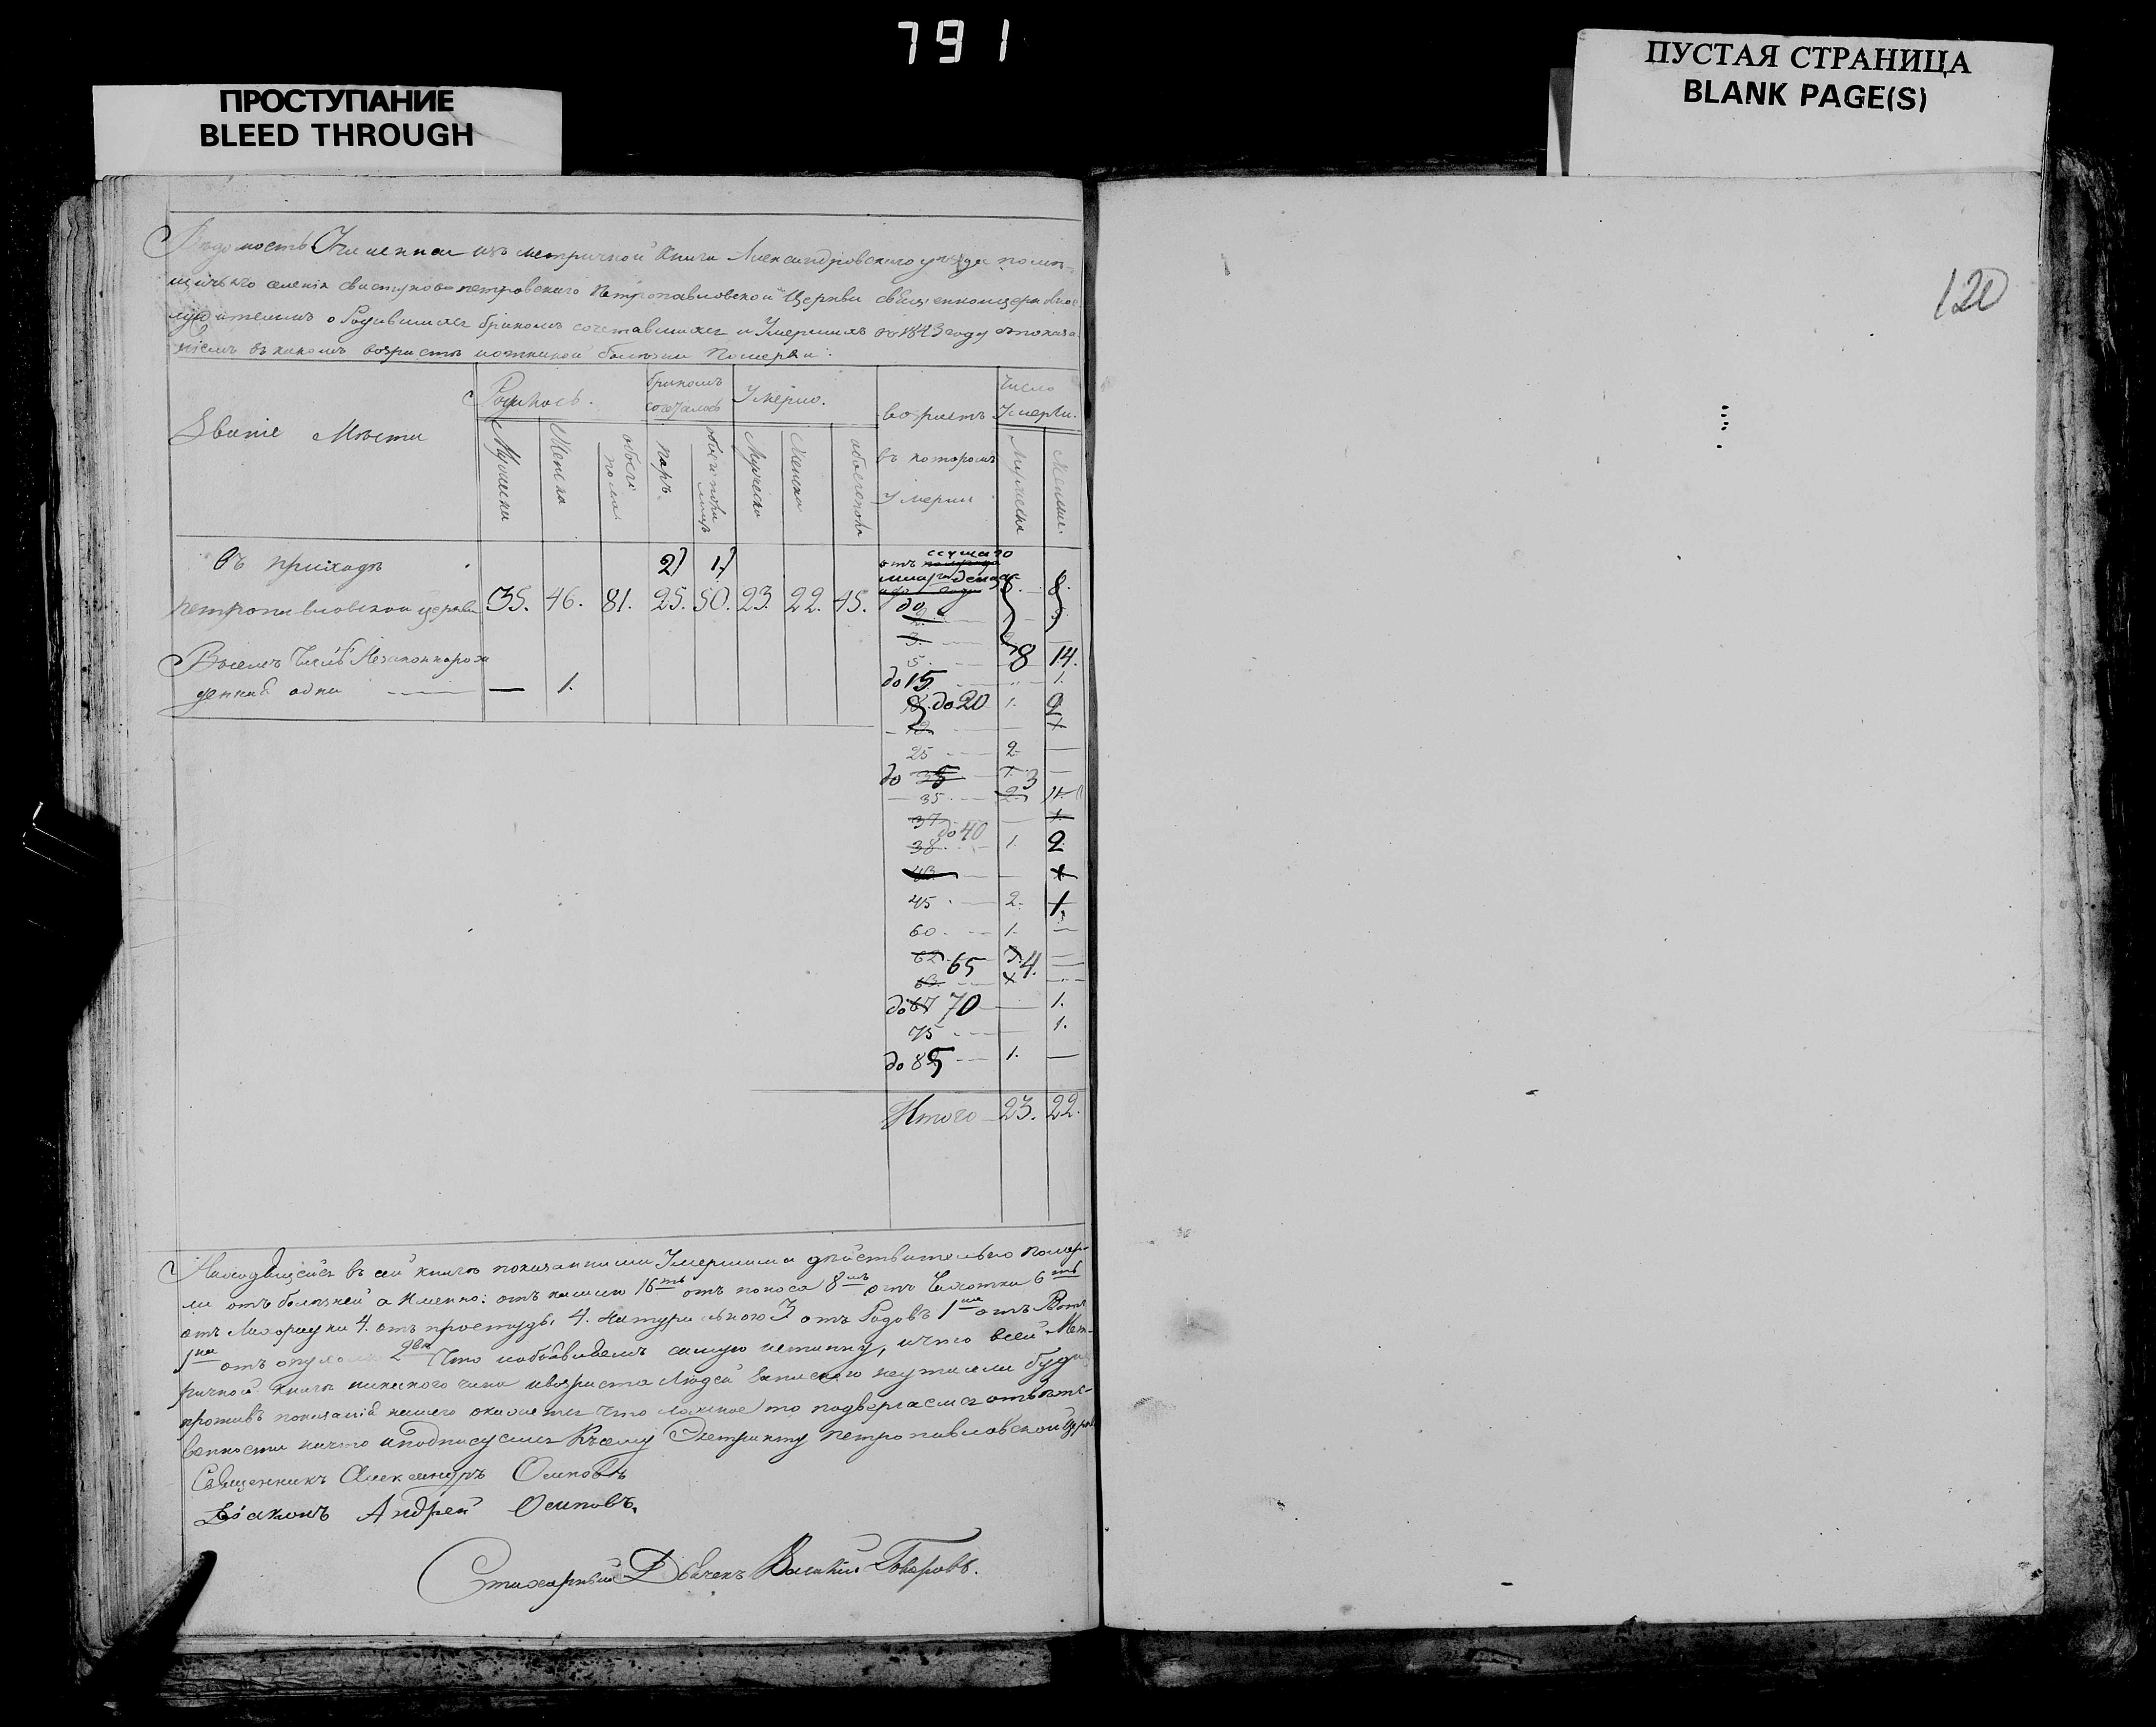 791
ПРОСТУПАНИЕ
BLEED THROUGH
ПУСТАЯ СТРАНИЦА
BLANK PAGE(S)
120
Ведомость Учиненная изъ метричной книги Александровскаго уезда помѣ-
щичьяго селенія Свистунова петровскаго Петропавловской Церкви священноцерковнос
лужителямъ о Родившихся бракомъ сочетавшихся и Умершихъ въ 1843 году съ показа
ніемъ въ какомъ возрастѣ и отъ какой болезни Померли.
Званіе Мѣста
Родилось.
бракомъ сочеталось
Умерло.
возрастъ въ которомъ Умерли
Число Умерли.
Мужеска
Женска
обоего пола
паръ
обоего пола лицъ
Мужеска
Женска
обоего пола
Мужеска
Женска
Въ приходѣ 2) 1)
петропавловской церкви 35. 46. 81. 25. 50. 23. 22. 45.
Въ семъ числѣ Незаконнорож
денная одна — 1.
8. 8.
до
2.
3.
5. 8 14.
до 15 1.
18. до 20 1. 2
25 2 —
до 35 3
35
37
до 40
38 1. 2
43
45 2. 1.
60 1. —
62 65 4. —
63
до 67 70 — 1.
75 — 1.
до 85 1. —
Итого 23. 22.
Находящейся въ сей книгѣ показанными Умершими действительно помер-
ли отъ болезней а Именно: отъ кашлю 16ть отъ поноса 8мь отъ Чахотки 6ть
отъ Лихорадки 4. отъ простуды 4. Натуральною 3 отъ Родовъ 1на отъ
1на отъ опухоли 2ва Что объявляемъ самую истинну, и что всей Мет-
ричной книги никакого чина и возраста Людей Записаю неутаили буде
противъ показаній нашего окажется Что ложное то подвергаемся ответс-
венности и подписуемся Къ сему Экстракту петропавловской церкви
Священникъ Александръ Осиповъ
Діаконъ Андрей Осиповъ.
Стихарный Дьячекъ Василій Говоровъ.